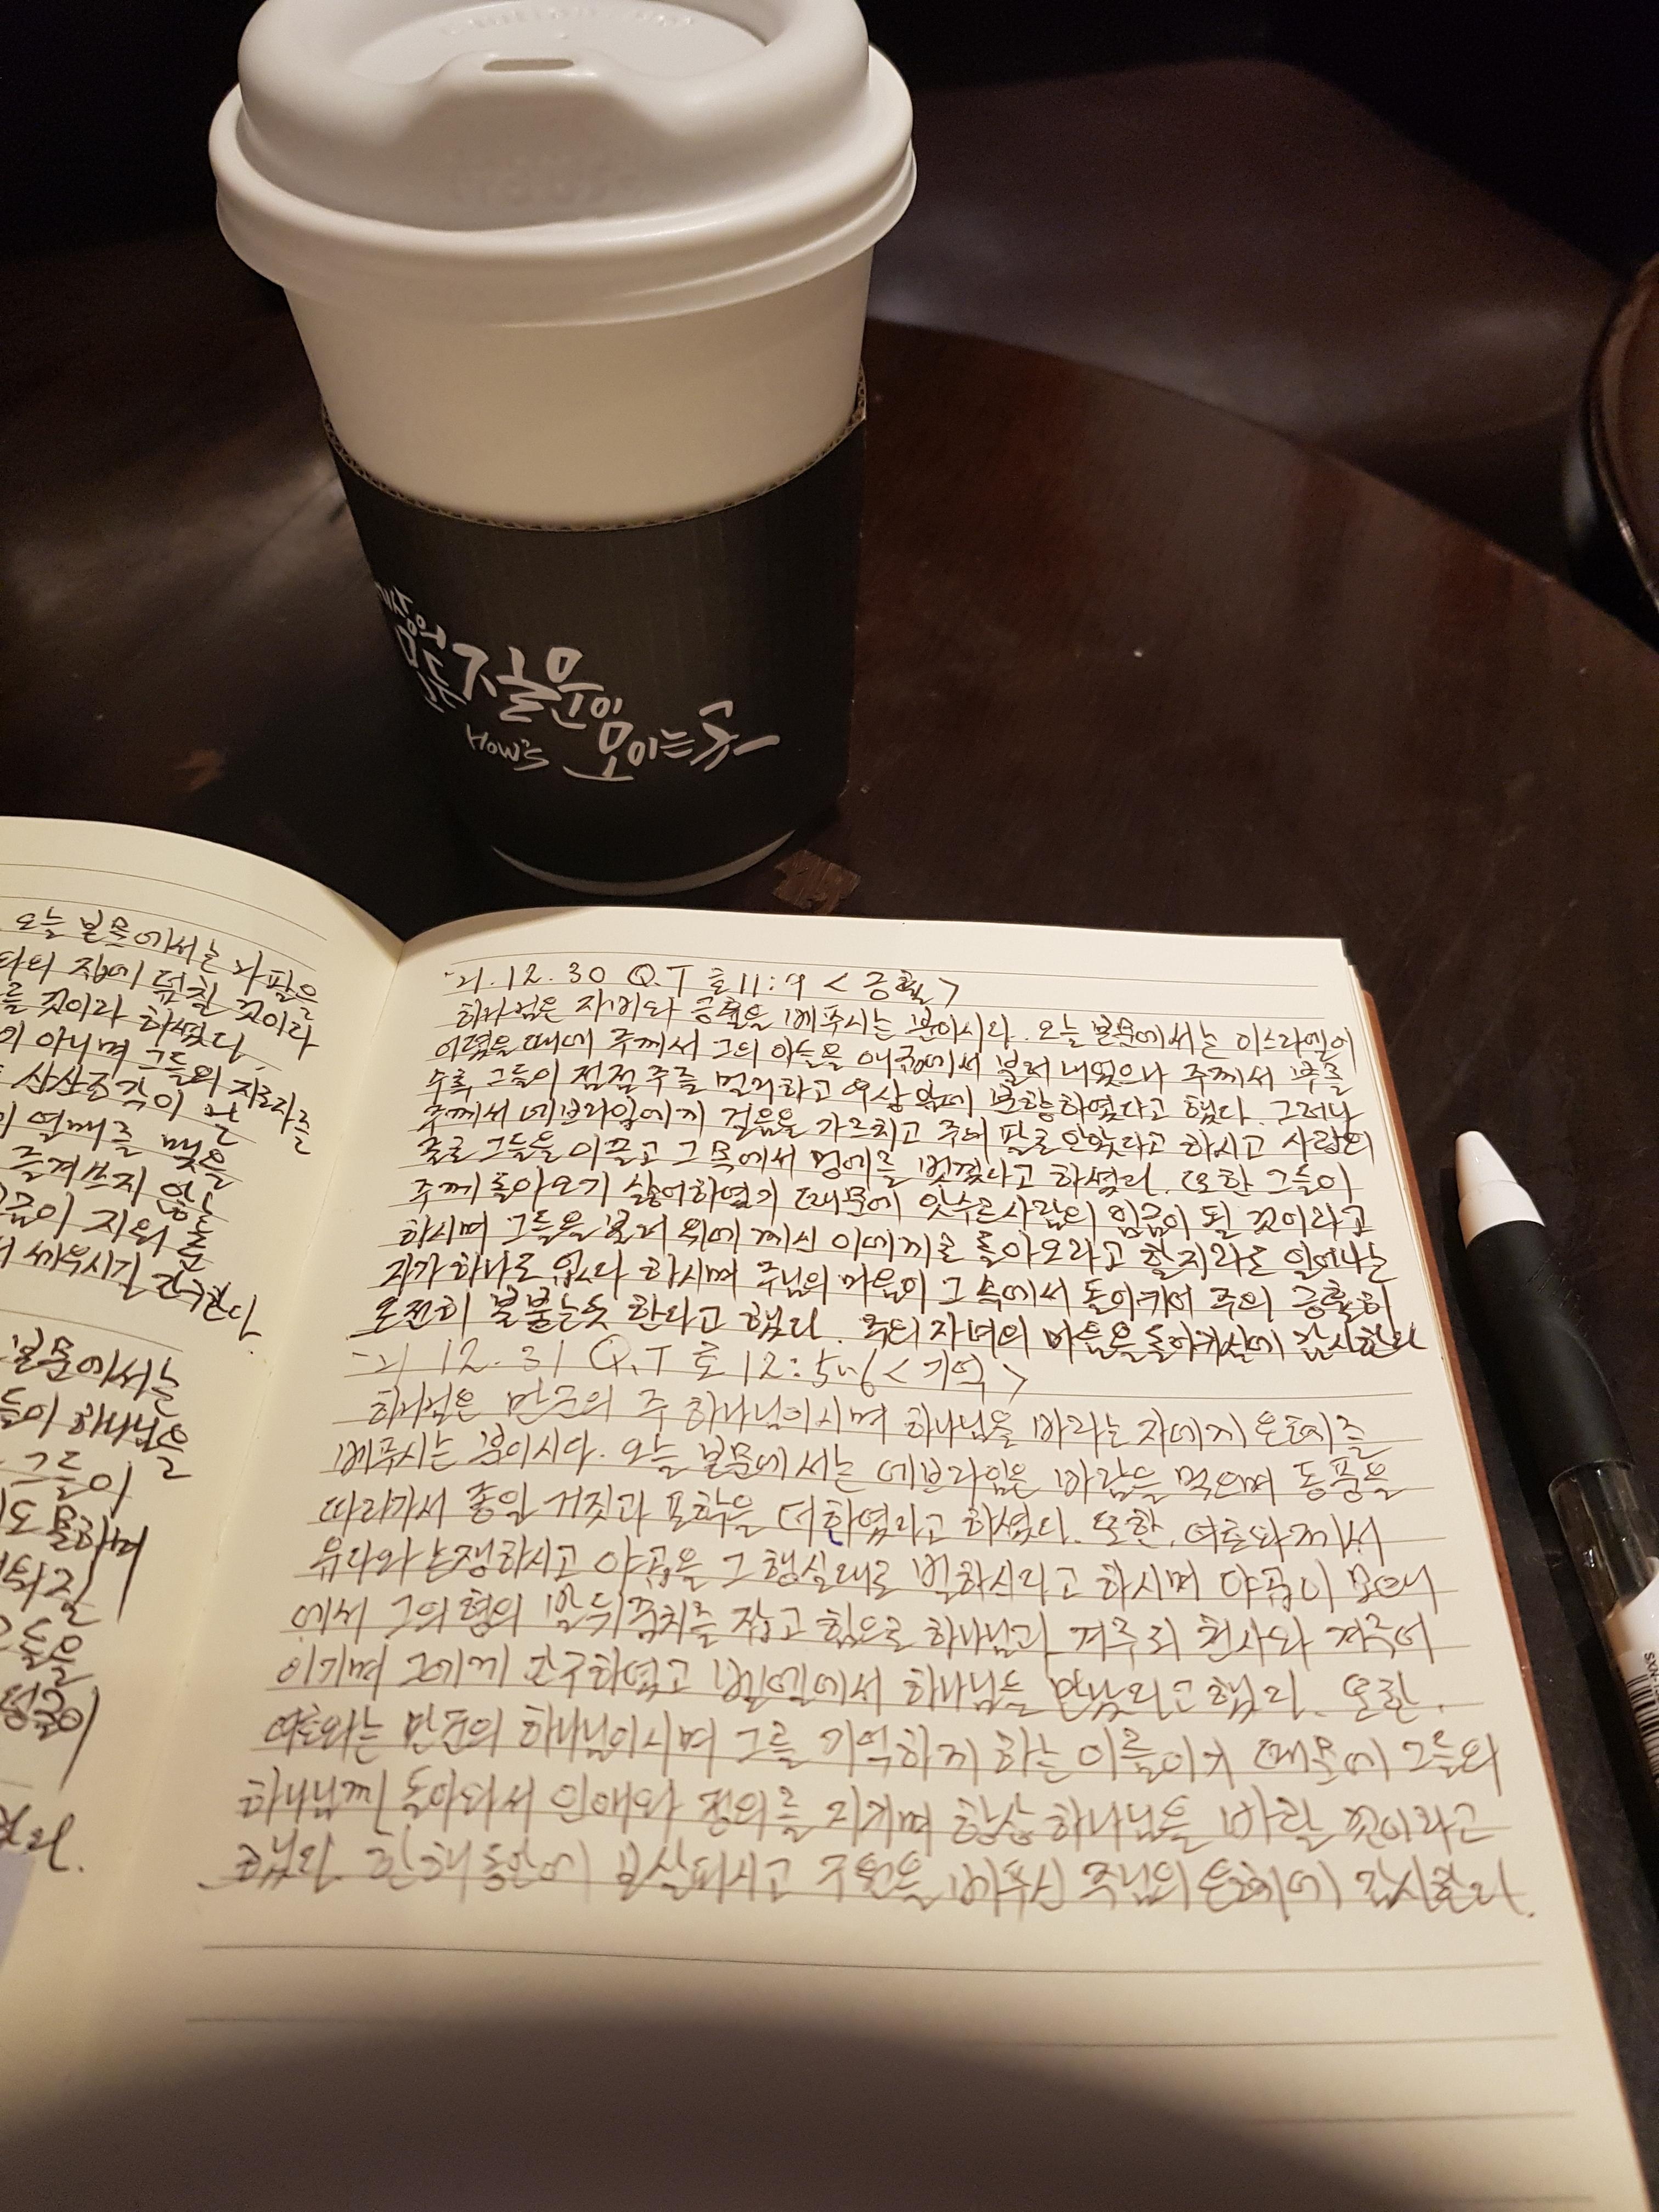 세상의
모든 질문이
How's 모이는 곳
오늘 본문에서는 나팔을
집에 덮칠 것이라
것이라 하셨다.
아니며 그들의
산산조각이 난
열매를 맺을
즐겨쓰지 않는
세우시길 간구한다.
본문에서는
하나님을
그들이
못하며
'21.12.30 Q.T 호11:9 <긍휼>
하나님은 자비와 긍휼을 베푸시는 분이시다. 오늘 본문에서는 이스라엘이
어렸을 때에 주께서 그의 아들을 애굽에서 불러 내었으나 주께서 부를
수록 그들이 점점 주를 멀리하고 우상 앞에 분향하였다고 했다. 그러나
주께서 에브라임에게 걸음을 가르치고 주의 팔로 안았다고 하시고 사랑의
줄로 그들을 이끌고 그 목에서 멍에를 벗겼다고 하셨다. 또한 그들이
주께 돌아오기 싫어하였기 때문에 앗수르 사람의 임금이 될 것이라고
하시며 그들을 불러 위에 계신 이에게로 돌아오라고 할지라도 일어나는
자가 하나도 없다 하시며 주님의 마음이 그 속에서 돌이키어 주의 긍휼이
온전히 불붙는듯 한다고 했다. 주의 자녀의 마음을 돌이키심에 감사한다
'21 12.31 Q.T 호12:5~6 <기억>
하나님은 만군의 주 하나님이시며 하나님을 바라는 자에게 은혜를
베푸시는 분이시다. 오늘 본문에서는 에브라임은 바람을 먹으며 동풍을
따라가서 종일 거짓과 포학을 더하였다고 하셨다. 또한, 여호와께서
유다와 논쟁하시고 야곱을 그 행실대로 벌하시라고 하시며 야곱이 모태
에서 그의 형의 발뒤꿈치를 잡고 힘으로 하나님과 겨루되 천사와 겨루어
이기며 그에게 간구하였고 벧엘에서 하나님을 만났다고 했다. 또한,
여호와는 만군의 하나님이시며 그를 기억하게 하는 이름이기 때문에 그들의
하나님께 돌아와서 인애와 정의를 지키며 항상 하나님을 바랄 것이라고
했다. 한해 동안에 보살피시고 구원을 베푸신 주님의 은혜에 감사한다.